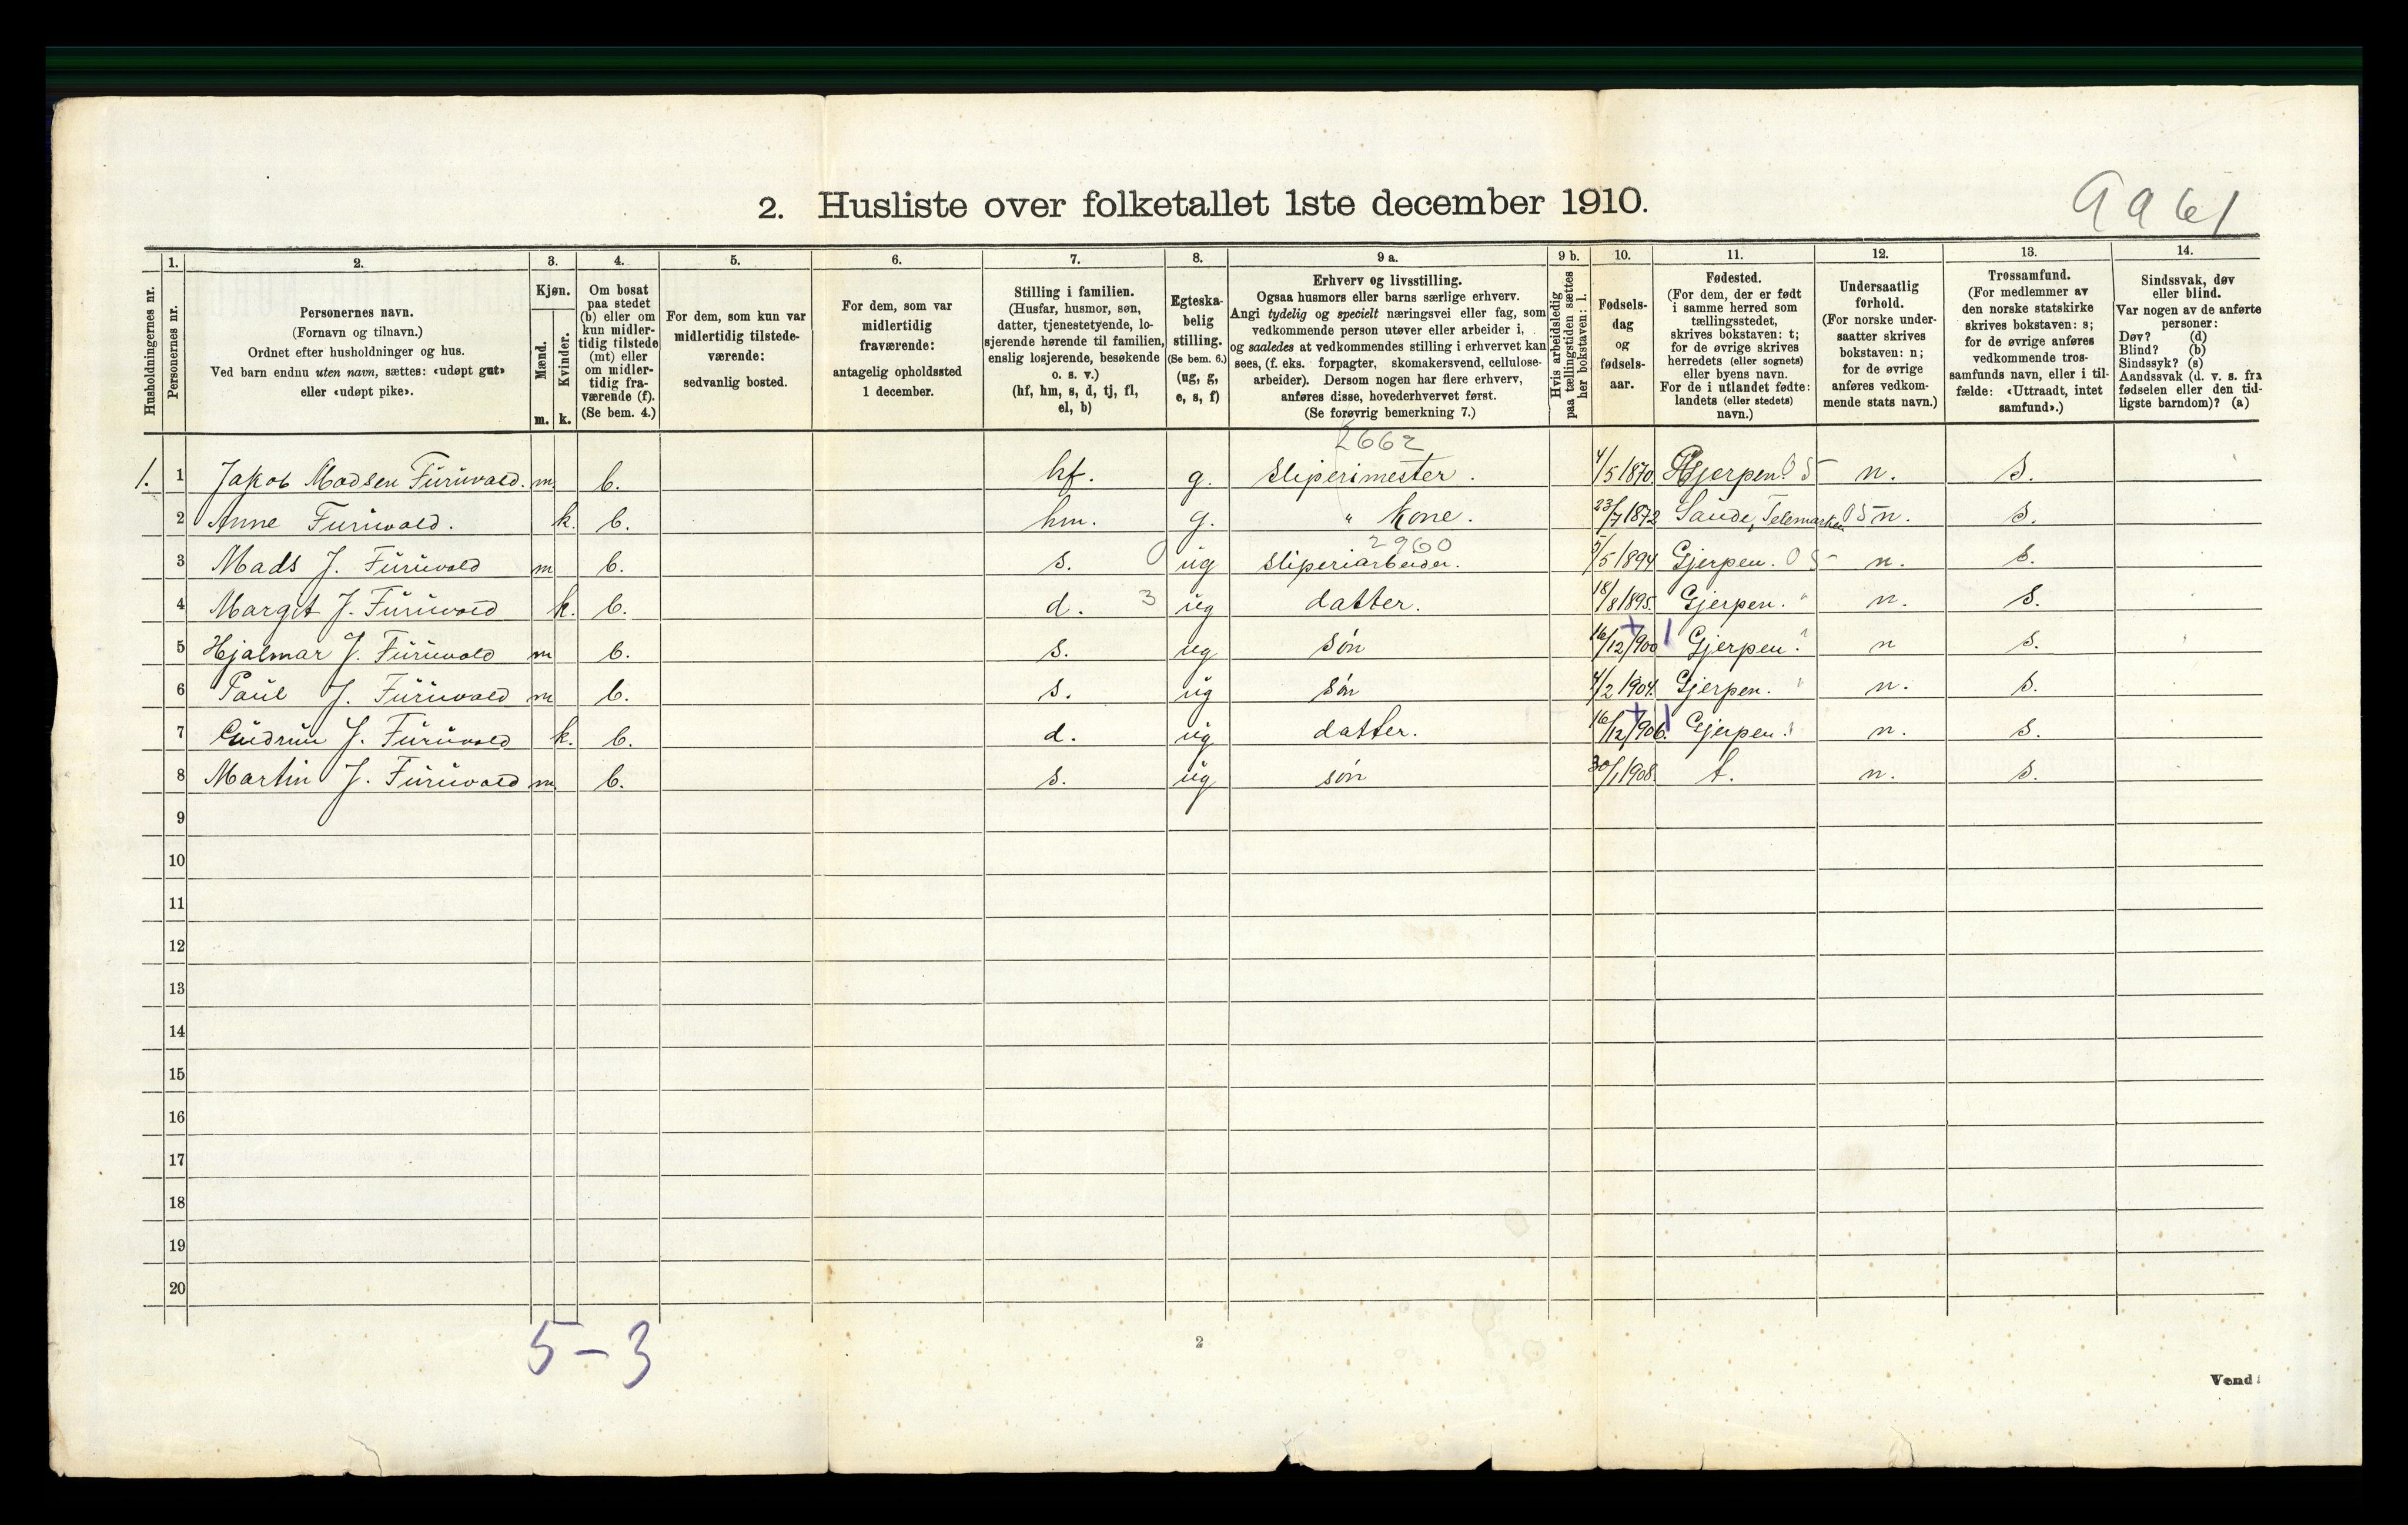 9961
2. Husliste over folketallet 1ste december 1910.
1. 2. 3. 4. 5. 6. 7. 8. 9 a. 9 b. 10. 11. 12. 13. 14.
Husholdningernes nr.
Personernes nr.
Personernes navn.
(Fornavn og tilnavn.)
Ordnet efter husholdninger og hus.
Ved barn endnu uten navn, sættes: «udøpt gut»
eller «udøpt pike».
Kjøn.
Mænd.
Kvinder.
m. k.
Om bosat
paa stedet
(b) eller om
kun midler-
tidig tilstede
(mt) eller
om midler-
tidig fra-
værende (f).
(Se bem. 4.)
For dem, som kun var
midlertidig tilstede-
værende:
sedvanlig bosted.
For dem, som var
midlertidig
fraværende:
antagelig opholdssted
1 december.
Stilling i familien.
(Husfar, husmor, søn,
datter, tjenestetyende, lo-
sjerende hørende til familien,
enslig losjerende, besøkende
o. s. v.)
(hf, hm, s, d, tj, fl,
el, b)
Egteska-
belig
stilling.
(Se bem. 6.)
(ug, g,
e, s, f)
Erhverv og livsstilling.
Ogsaa husmors eller barns særlige erhverv.
Angi tydelig og specielt næringsvei eller fag, som
vedkommende person utøver eller arbeider i,
og saaledes at vedkommendes stilling i erhvervet kan
sees, (f. eks. forpagter, skomakersvend, cellulose-
arbeider). Dersom nogen har flere erhverv,
anføres disse, hovederhvervet først.
(Se forøvrig bemerkning 7.)
Hvis arbeidsledig
paa tællingstiden sættes
her bokstaven: l.
Fødsels-
dag
og
fødsels-
aar.
Fødested.
(For dem, der er født
i samme herred som
tællingsstedet,
skrives bokstaven: t;
for de øvrige skrives
herredets (eller sognets)
eller byens navn.
For de i utlandet fødte:
landets (eller stedets)
navn.)
Undersaatlig
forhold.
(For norske under-
saatter skrives
bokstaven: n;
for de øvrige
anføres vedkom-
mende stats navn.)
Trossamfund.
(For medlemmer av
den norske statskirke
skrives bokstaven: s;
for de øvrige anføres
vedkommende tros-
samfunds navn, eller i til-
fælde: «Uttraadt, intet
samfund».)
Sindssvak, døv
eller blind.
Var nogen av de anførte
personer:
Døv? (d)
Blind? (b)
Sindssyk? (s)
Aandssvak (d. v. s. fra
fødselen eller den tid-
ligste barndom)? (a)
2662
1. 1 Jakob Madsen Furuvald. m b. hf. g. Sliperimester. 4/5 1870. Gjerpen. 05 n. s.
2 Anne Furuvald. k. b. hm. g. " Kone. 23/7 1872 Saude, Telemarken 05 n. s.
2960
3 Mads J. Furuvald m b. s. 0 ug sliperiarbeider. /5 1894 Gjerpen. 05 n. s.
4 Margit J. Furuvald k. b. d. 3 ug datter. 18/8 1895. Gjerpen. " n. s.
5 Hjalmar J. Furuvald m b. s. ug søn 16/12 1900 Gjerpen. " n s.
6 Paul J. Furuvald m b. s. ug søn 4/2 1904. Gjerpen. " n. s.
7 Gudrun J. Furuvald k. b. d. ug datter. 16/12 1906. Gjerpen. " n. s.
8 Martin J. Furuvald m. b. s. ug søn 30/1 1908. t. n. s.
9
10
11
12
13
14
15
16
17
18
19
20
5-3
2
Vend!